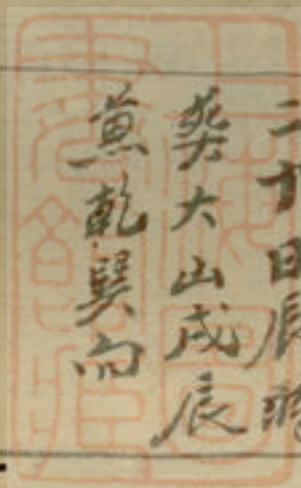 二十日辰時
葬大山戌辰
兼乾巽向